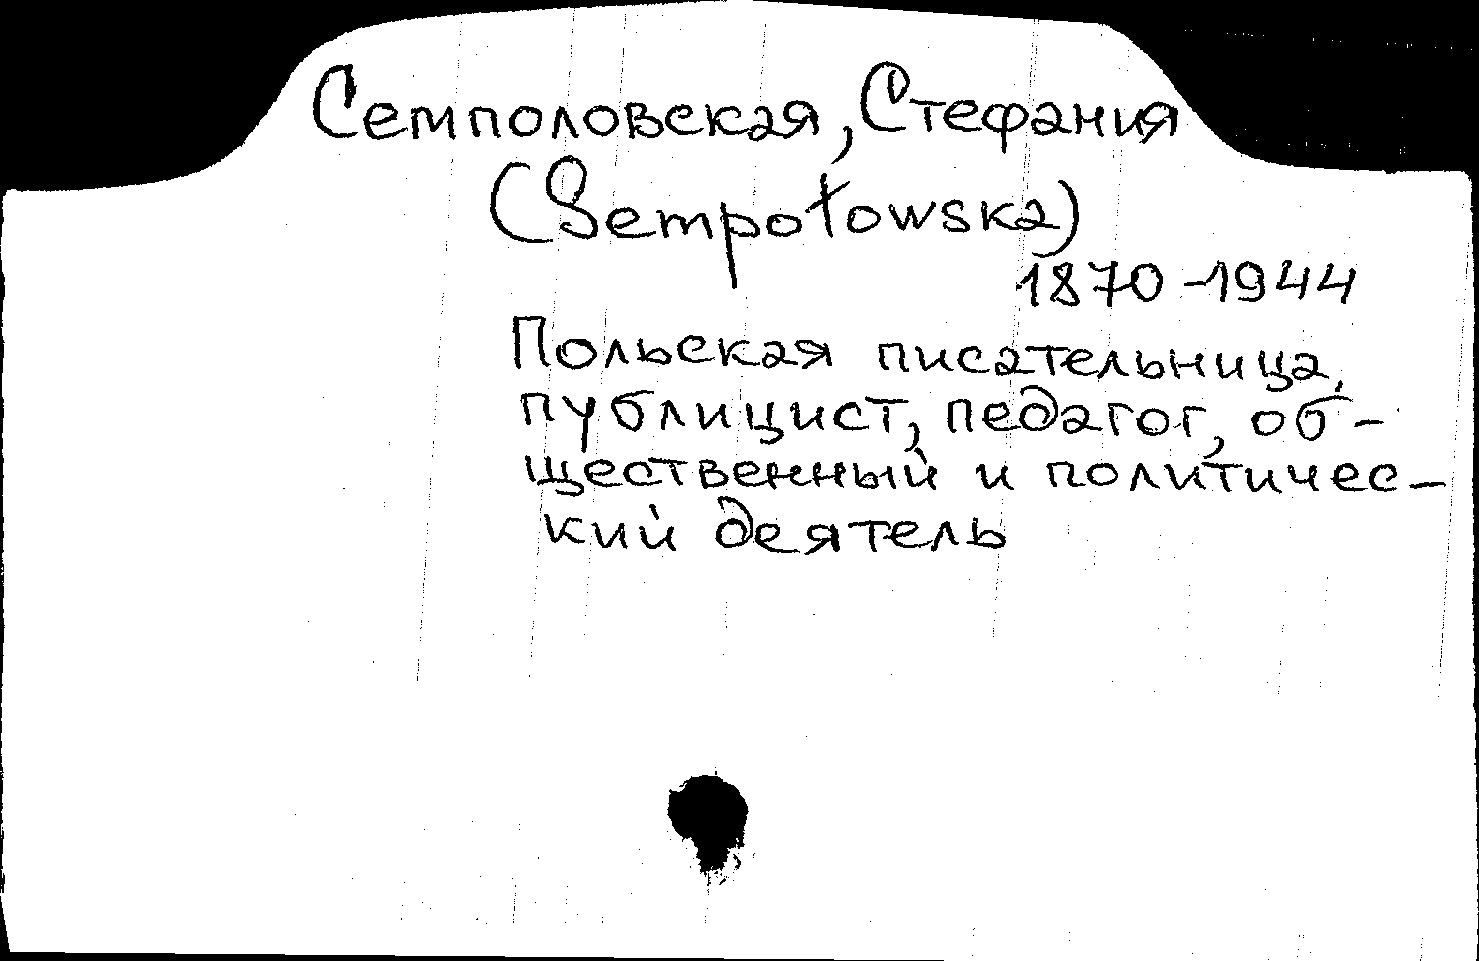 Семполовская, Стефания
(Sempołowska)
1870-1944
Польская писательница,
публицист, педагог, об-
щественный и политичес-
кий деятель